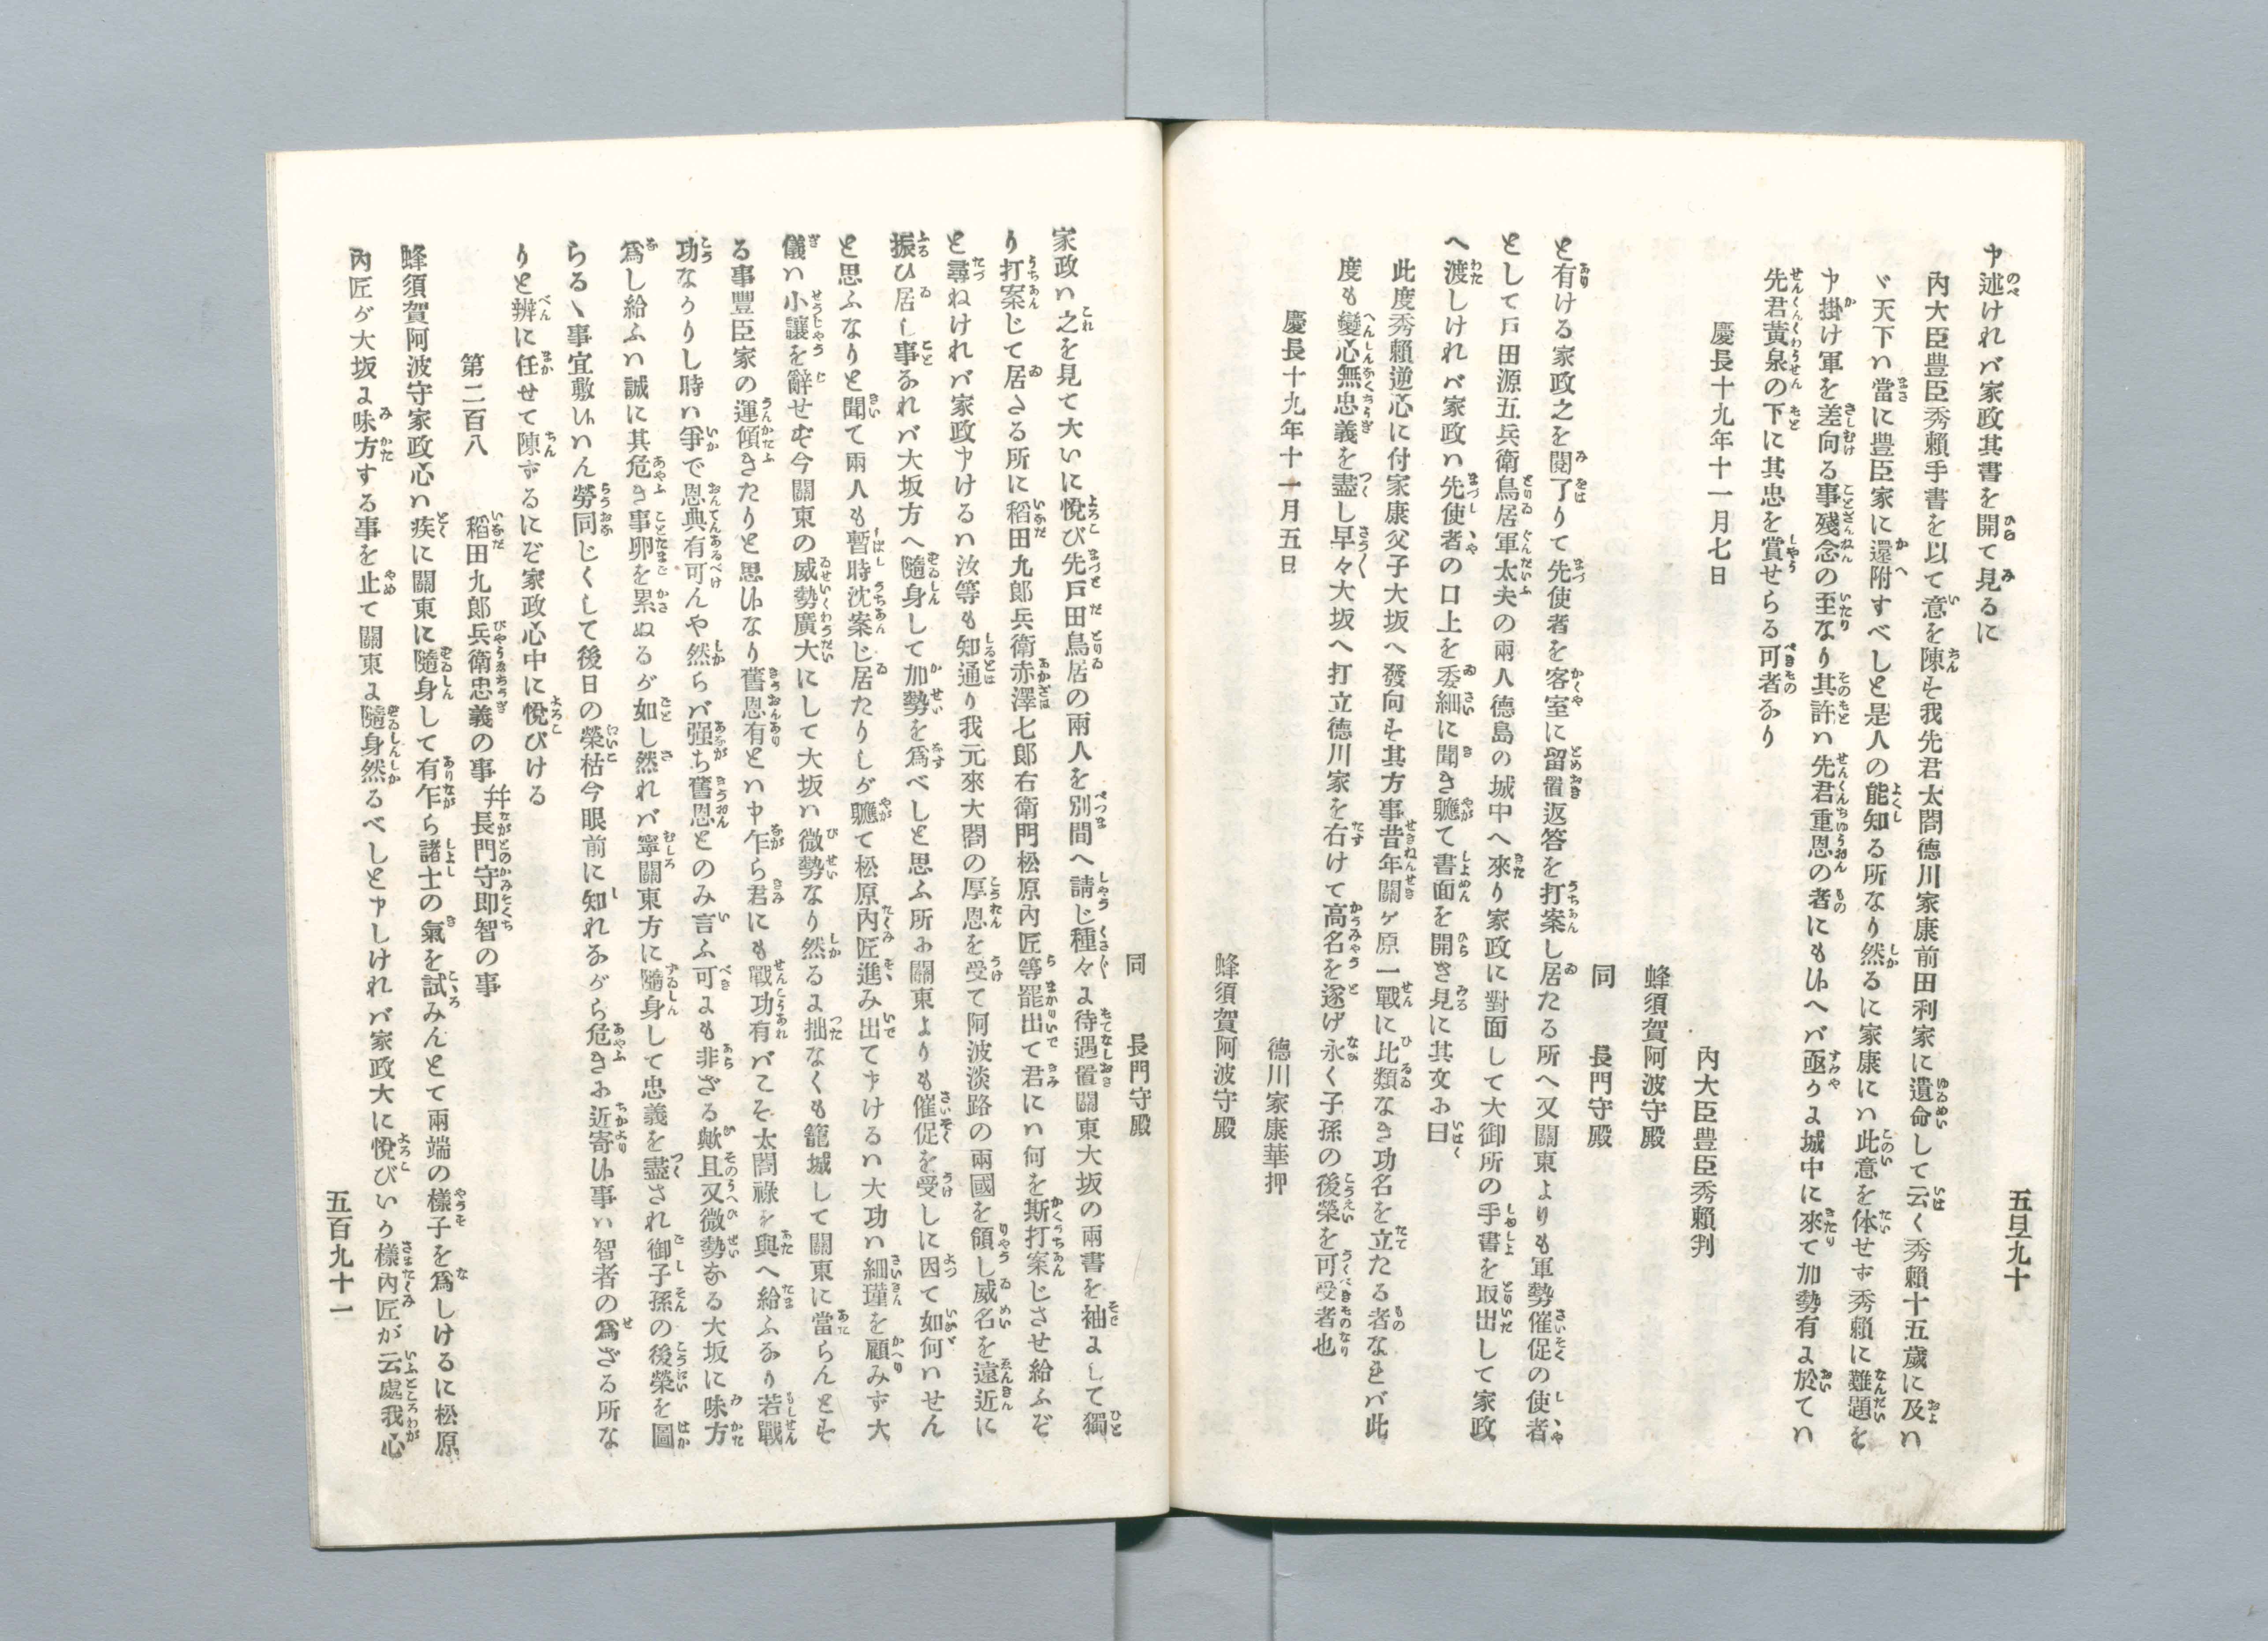 五百九十
申述ければ家政其書を開て見るに
内大臣豊臣秀頼手書を以て意を陳ず我先君太閤徳川家康前田利家に遺命して云く秀頼十五歳に及ハ
ヾ天下ハ當に豊臣家に還附すべしと是人の能知る所なり然るに家康にハ此意を体せず秀頼に難題を
申掛け軍を差向る事殘念の至なり其許ハ先君重恩の者にも候へバ亟かに城中に來て加勢有に於てハ
先君黄泉の下に其忠を賞せらる可者なり
慶長十九年十一月七日
内大臣豊臣秀頼判
蜂須賀阿波守殿
同　長門守殿
と有ける家政之を閲了りて先使者を客室に留置返答を打案し居たる所へ又關東よりも軍勢催促の使者
として戸田源五兵衛鳥居軍太夫の兩人德島の城中へ來り家政に對面して大御所の手書を取出して家政
へ渡しければ家政ハ先使者の口上を委細に聞き軈て書面を開き見に其文に曰
此度秀頼逆心に付家康父子大坂へ發向す其方事昔年關ヶ原一戰に比類なき功名を立たる者なれバ此
度も變心無忠義を盡し早々大坂へ打立德川家を右けて高名を遂げ永く子孫の後榮を可受者也
慶長十九年十一月五日
德川家康華押
蜂須賀阿波守殿
同　長門守殿
家政ハ之を見て大いに悅び先戸田鳥居の兩人を別間へ請じ種々に待遇置關東大坂の兩書を袖にして獨
り打案じて居さる所に稻田九郎兵衛赤澤七郎右衛門松原內匠等罷出て君にハ何を斯打案じさせ給ふぞ
と尋ねければ家政申けるハ汝等も知通り我元來大閤の厚恩を受て阿波淡路の兩國を領し威名を遠近に
振ひ居し事なれバ大坂方へ隨身して加勢を爲べしと思ふ所に關東よりも催促を受しに因て如何ハせん
と思ふなりと聞て兩人も暫時沈案じ居たりしが軈て松原內匠進み出て申けるハ大功ハ細瑾を顧みず大
儀ハ小讓を辭せず今關東の威勢廣大にして大坂ハ微勢なり然るに拙なくも籠城して關東に當らんとす
る事豐臣家の運傾きたりと思候なり舊恩有とハ申乍ら君にも戰功有バこそ太閤祿を與へ給ふなり若戰
功なかりし時ハ爭で恩典有可んや然らバ强ち舊恩とのみ言ふ可にも非ざる歟且又微勢なる大坂に味方
爲し給ふハ誠に其危き事卵を累ぬるが如し然れバ寧關東方に隨身して忠義を盡され御子孫の後榮を圖
らるヽ事宜敷候ハん勞同じくして後日の榮枯今眼前に知れながら危きに近寄候事ハ智者の爲ざる所な
りと辨に任せて陳ずるにぞ家政心中に悅びける
第二百八　稻田九郎兵衛忠義の事　并長門守即智の事
蜂須賀阿波守家政心ハ疾に關東に隨身して有乍ら諸士の氣を試みんとて兩端の樣子を爲しけるに松原
內匠が大坂に味方する事を止て關東に隨身然るべしと申しければ家政大に悅びいか樣內匠が云處我心
五百九十一